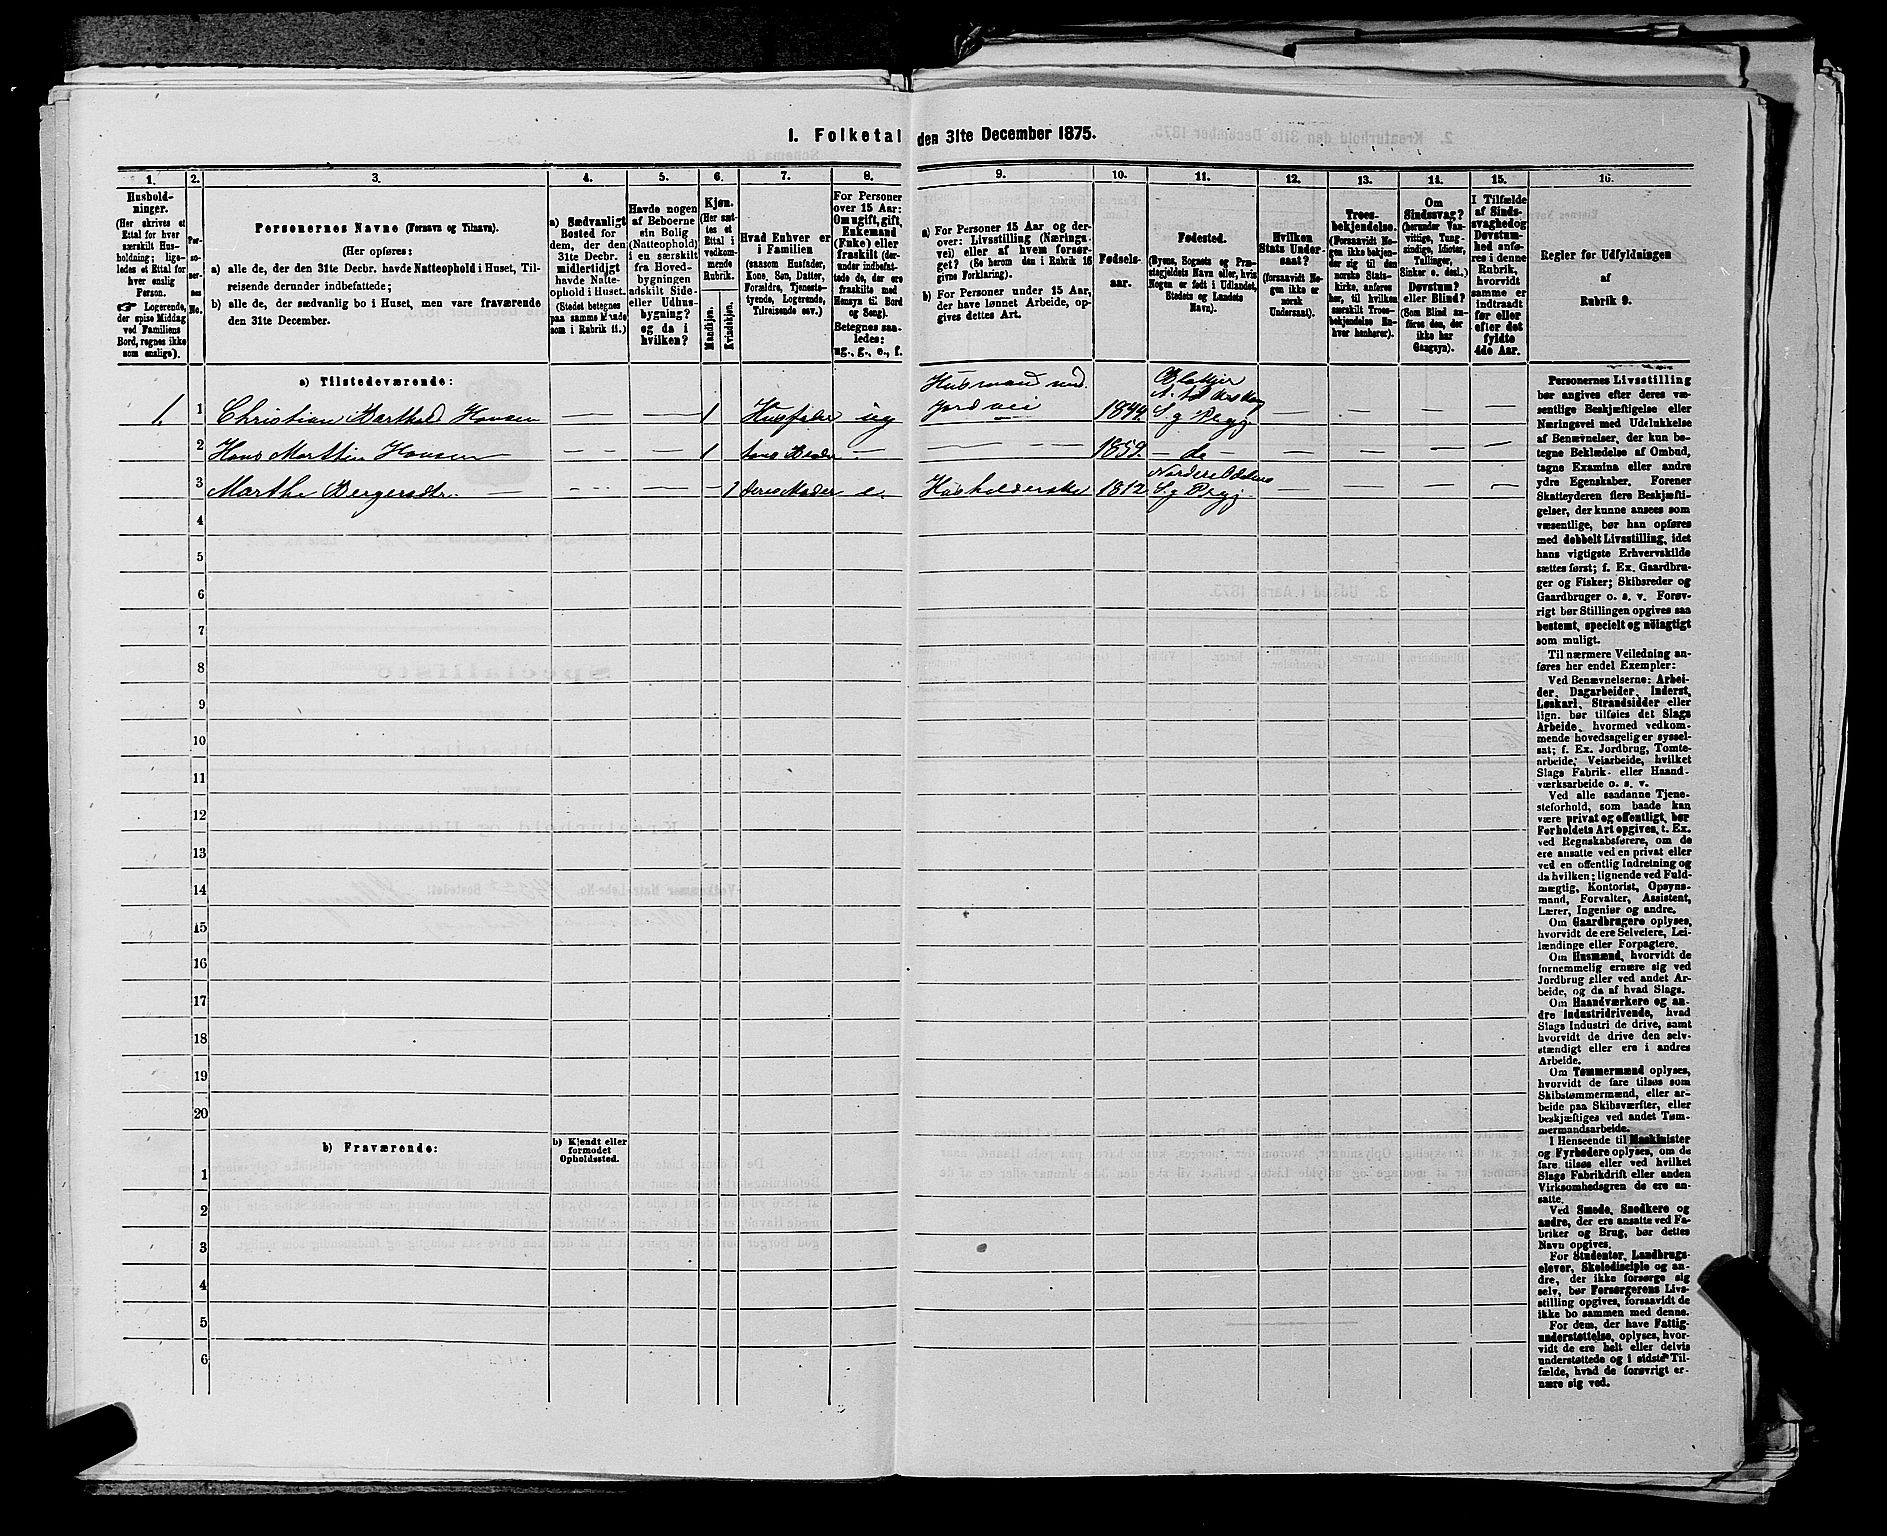 1. Folketal den 31te December 1875.
1. 2. 3. 4. 5. 6. 7. 8. 9. 10. 11. 12. 13. 14. 15. 16.
Hushold-
ninger.
(Her skrives et
Ettal for hver
særskilt Hus-
holdning; lige-
ledes et Ettal for
hver enslig
Person.
☞ Logerende,
der spise Middag
ved Familiens
Bord, regnes ikke
som enslige).
Per-
so-
ner-
nes
No.
Personernes Navne (Fornavn og Tilnavn).
(Her opføres:
a) alle de, der den 31te Decbr. havde Natteophold i Huset, Til-
reisende derunder indbefattede;
b) alle de, der sædvanlig bo i Huset, men vare fraværende
den 31te December.
a) Sædvanligt
Bosted for
dem, der den
31te Decbr.
midlertidigt
havde Natte-
ophold i Huset.
(Stedet betegnes
paa samme Maade
som i Rubrik 11.)
Havde nogen
af Beboerne
sin Bolig
(Natteophold)
i en særskilt
fra Hoved-
bygningen
adskilt Side-
eller Udhus-
bygning?
og da i
hvilken?
Kjøn.
(Her sæt-
tes et
Ettal i
vedkom-
mende
Rubrik.
Mandkjøn.
Kvindekjøn.
Hvad Enhver er
i Familien
(saasom Husfader,
Kone, Søn, Datter,
Forældre, Tjeneste-
tyende, Logerende,
Tilreisende osv.)
For Personer
over 15 Aar:
Om ugift, gift,
Enkemand
(Enke) eller
fraskilt (der-
under indbefat-
tede de, der ere
fraskilte med
Hensyn til Bord
og Seng).
Betegnes saa-
ledes:
ug., g., e., f.
a) For Personer 15 Aar og der-
over: Livsstilling (Nærings-
vei) eller af hvem forsør-
get? (Se herom den i Rubrik 16
givne Forklaring).
b) For Personer under 15 Aar,
der have lønnet Arbeide, op-
gives dettes Art.
Fødsels-
aar.
Fødested.
(Byens, Sognets og Præ-
stegjeldets Navn eller, hvis
Nogen er født i Udlandet,
Stedets og Landets
Navn).
Hvilken
Stats Under-
saat?
(forsaavidt No-
gen ikke er
norsk
Undersaat).
Troes-
bekjendelse.
(Forsaavidt No-
gen ikke bekjen-
der sig til den
norske Stats-
kirke, anføres
her, til hvilken
særskilt Troes-
bekjendelse En-
hver henhører).
Om
Sindssvag?
(herunder Van-
vittige, Tung-
sindige, Idioter,
Tullinger,
Sinker o. desl.)
Døvstum?
eller Blind?
(Som Blind an-
føres den, der
ikke har
Gangsyn).
I Tilfælde
af Sinds-
svaghed og
Døvstum-
hed anfø-
res i denne
Rubrik,
hvorvidt
samme er
indtraadt
før eller
efter det
fyldte
4de Aar.
Regler for Udfyldningen
af
Rubrik 9.
a) Tilstedeværende:
1. 1 Christian Barthol Hansen — — 1 Husfader ug Husmand med Jord 1844 Blakjer S. g Prgj — — — —
2 Hans Marthin Hansen — — 1 hans Broder — — 1859 — do — — — — —
3 Marthe Bergersdtr. — — — 1 deres Moder e. Husholderske 1812 S. g Prgj — — — —
4
5
6
7
8
9
10
11
12
13
14
15
16
17
18
19
20
b) Fraværende:
b) Kjendt eller
formodet
Opholdssted.
1
2
3
4
5
6
Personernes Livsstilling
bør angives efter deres væ-
sentlige Beskjæftigelse eller
Næringsvei med Udelukkelse
af Benævnelser, der kun be-
tegne Beklædelse af Ombud,
tagne Examina eller andre
ydre Egenskaber. Forener
Skatteyderen flere Beskjæfti-
gelser, der kunne ansees som
væsentlige, bør han opføres
med dobbelt Livsstilling, idet
hans vigtigste Erhvervskilde
sættes først; f. Ex. Gaardbru-
ger og Fisker; Skibsreder og
Gaardbruger o. s. v. Forøv-
rigt bør Stillingen opgives saa
bestemt, specielt og nöiagtigt
som muligt.
Til nærmere Veiledning an-
føres her endel Exempler:
Ved Benævnelserne: Arbei-
der, Dagarbeider, Inderst,
Løskarl, Strandsidder eller
lign. bør tilføies det Slags
Arbeide, hvormed vedkom-
mende hovedsagelig er syssel-
sat; f. Ex. Jordbrug, Tomte-
arbeide, Veiarbeide, hvilket
Slags Fabrik- eller Haand-
værksarbeide o. s. v.
Ved alle saadanne Tjene-
steforhold, som baade kan
være privat og offentligt, bør
Forholdets Art opgives, t. Ex.
ved Regnskabsførere, om de
ere ansatte ved en privat eller
ved en offentlig Indretning og
da hvilken; lignende ved Fuld-
mægtig, Kontorist, Opsyns-
mand, Forvalter, Assistent,
Lærer, Ingeniør og andre.
Om Gaardbrugere oplyses,
hvorvidt de ere Selveiere, Lei-
lændinge eller Forpagtere.
Om Husmænd, hvorvidt de
fornemmelig ernære sig ved
Jordbrug eller ved andet Ar-
beide, og da af hvad Slags.
Om Haandværkere og an-
dre industridrivende, hvad
Slags Industri de drive, samt
hvorvidt de drive den selv-
stændigt eller ere i andres
Arbeide.
Om Tømmermænd oplyses,
hvorvidt de fare tilsøs som
Skibstømmermænd, eller ar-
beide paa Skibsværfter, eller
beskjæftiges ved andet Tøm-
mermandsarbeide.
I Henseende til Maskinister
og Fyrbødere oplyses, om de
fare tilsøs eller ved hvilket
Slags Fabrikdrift eller anden
Virksomhedsgren de ere an-
satte.
Ved Smede, Snedkere og
andre, der ere ansatte ved Fa-
briker og Brug, bør dettes
Navn opgives.
For Studenter, Landbrugs-
elever, Skoledisciple og an-
dre, der ikke forsørge sig
selv, bør Forsørgerens Livs-
stilling opgives, forsaavidt de
ikke bo sammen med denne.
For dem, der have Fattig-
understøttelse, oplyses, hvor-
vidt de ere helt eller delvis
understøttede og i sidste Til-
fælde, hvad de forøvrigt er-
nære sig ved.